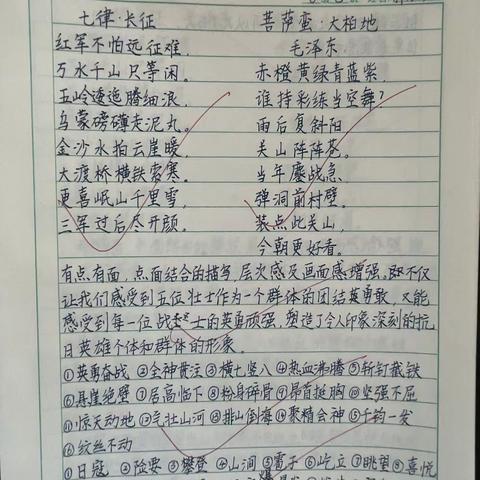 七律·长征
红军不怕远征难,
万水千山只等闲。
五岭逶迤腾细浪,
乌蒙磅礴走泥丸。
金沙水拍云崖暖,
大渡桥横铁索寒。
更喜岷山千里雪,
三军过后尽开颜。
菩萨蛮·大柏地
毛泽东
赤橙黄绿青蓝紫,
谁持彩练当空舞?
雨后复斜阳,
关山阵阵苍。
当年鏖战急,
弹洞前村壁。
装点此关山,
今朝更好看。
有点有面,点面结合的描写,层次感及画面感增强。即不仅
让我们感受到五位壮士作为一个群体的团结英勇敢,又能
感受到每一位战士的英勇顽强,塑造了令人印象深刻的抗
日英雄个体和群体的形象。
①英勇奋战 ②全神贯注 ③横七竖八 ④热血沸腾 ⑤斩钉截铁
⑥悬崖绝壁 ⑦居高临下 ⑧粉身碎骨 ⑨昂首挺胸 ⑩坚强不屈
⑪惊天动地 ⑫气壮山河 ⑬排山倒海 ⑭聚精会神 ⑮千钧一发
⑯纹丝不动
①日寇 ②险要 ③攀登 ④山涧 ⑤雹子 ⑥屹立 ⑦眺望 ⑧喜悦